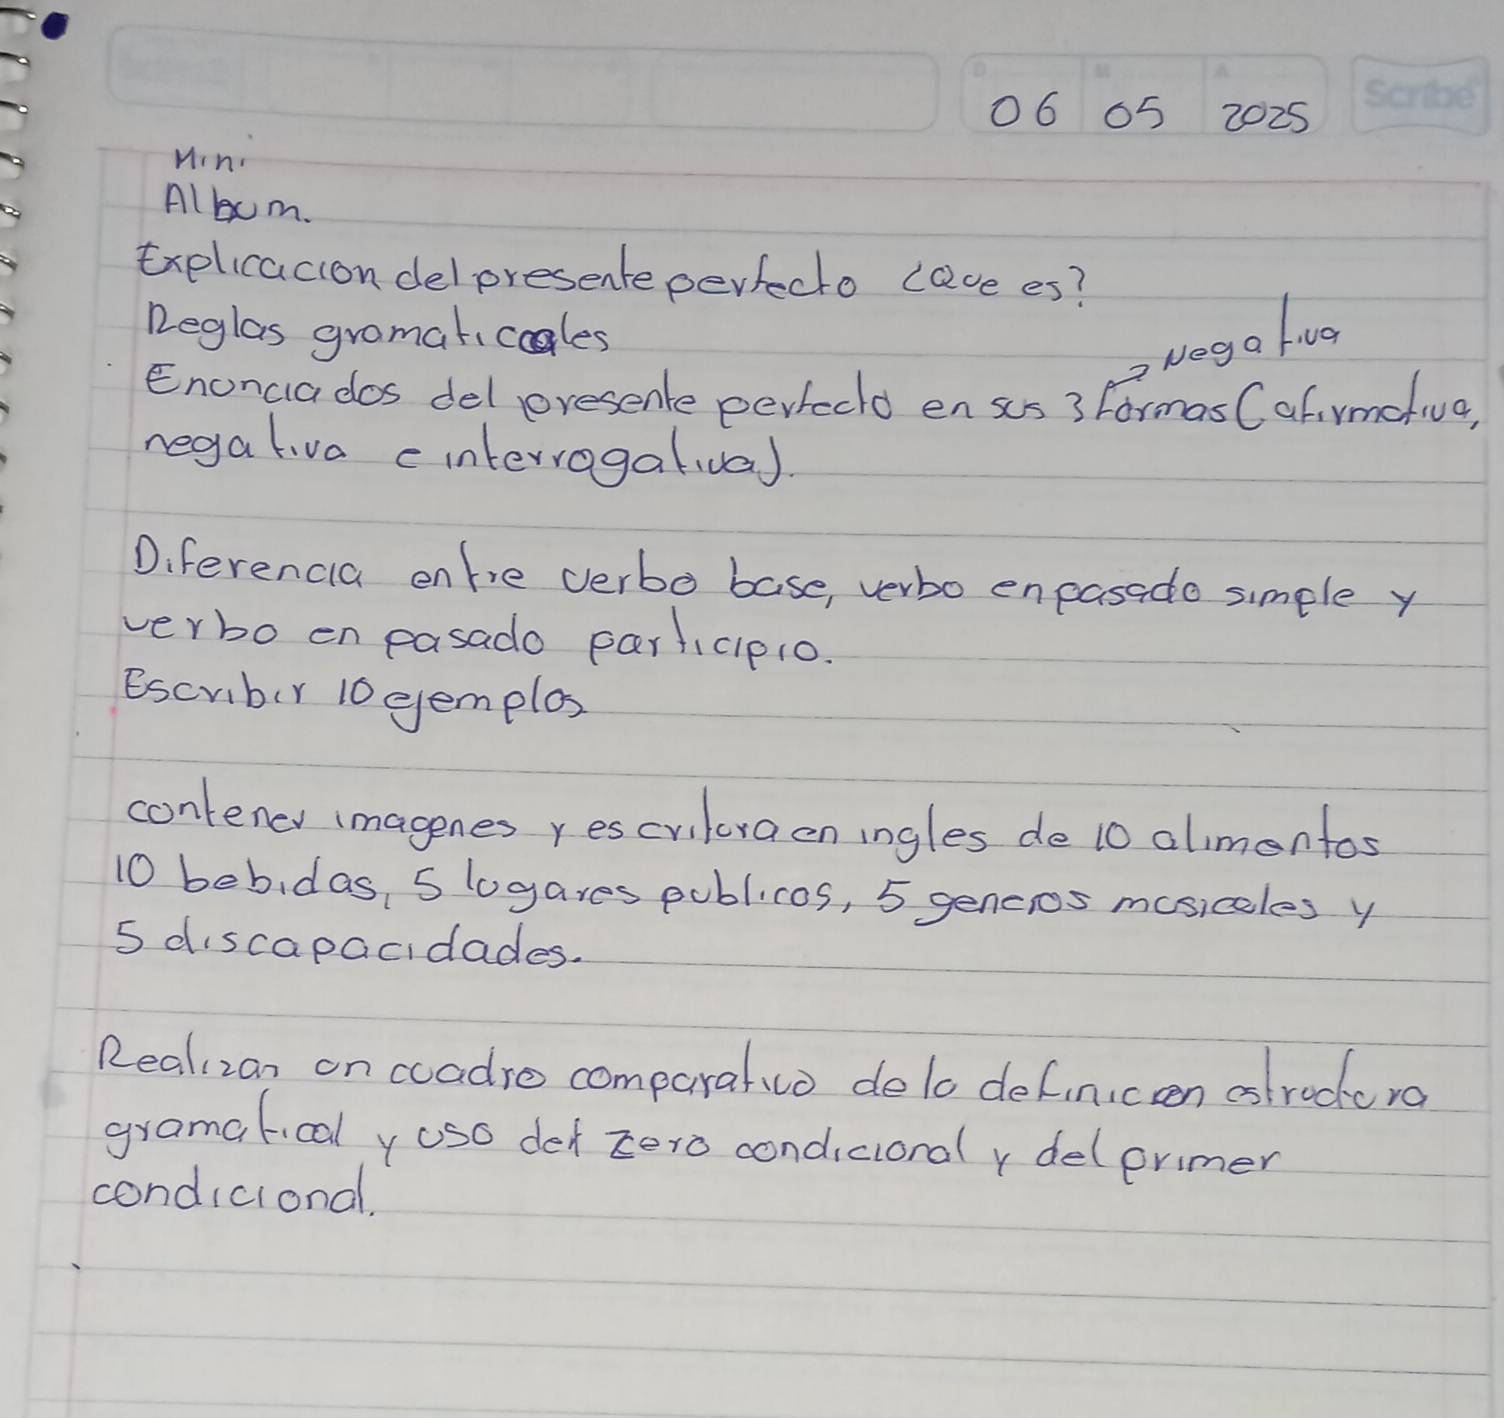 D M A
06 05 2025 Scribe
Mini
Album.
Explicacion del presente perfecto ¿Que es?
Reglas gramaticales
Negativa
Enunciados del presente perfecto en sus 3 formas (afirmativa,
negativa e interrogativa).
Diferencia entre verbo base, verbo en pasado simple y
verbo en pasado participio.
Escribir 10 ejemplos
contener imagenes y escritura en ingles de 10 alimentos
10 bebidas, 5 lugares publicos, 5 generos musicales y
5 discapacidades.
Realizar un cuadro comparativo de la definicion estructura
gramatical y uso del zero condicional y del primer
condicional.